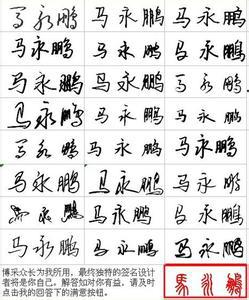 马永鹏 马永鹏 马永鹏
马永鹏 马永鹏 马永鹏
马永鹏 马永鹏 马永鹏
马永鹏 马永鹏 马永鹏
马永鹏 马永鹏 马永鹏
马永鹏 马永鹏 马永鹏
马永鹏 马永鹏 马永鹏
马永鹏 马永鹏 马永鹏
博采众长为我所用,最终独特的签名设计
者将是你自己。解答如对你有益,请及时
点击我的回答下的满意按钮。
馬永鵬